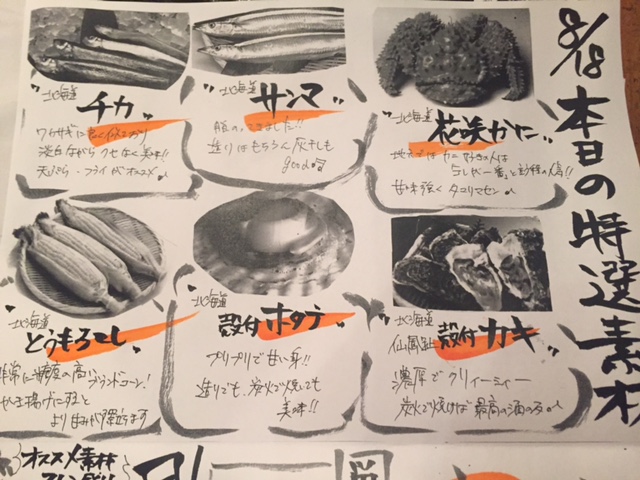 8/18 本日の特選素材
北海道
花咲かに
甘味強くタコリマセン
北海道
サンマ
造りはもちろん灰干しも
good
北海道
チカ
淡白ながらクセなく美味!!
天ぷら・フライがオススメ
北海道
仙鳳趾 殻付カキ
濃厚でクリィーミィー
炭火で焼けば最高の酒の友
北海道
殻付ホタテ
プリプリで甘い身!!
造りでも、炭火で焼いても
美味!!
北海道
とうもろこし
非常に糖度の高いブランドコーン!
かき揚げにすると
より甘みが際立ちます
オススメ素材